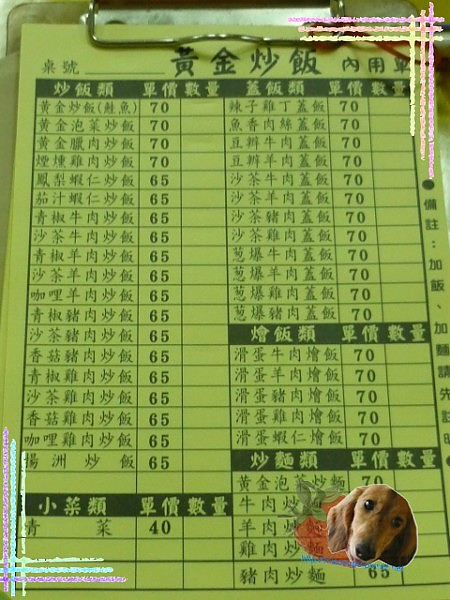 桌號 黃金炒飯 內用單
炒飯類 單價 數量
黃金炒飯(鮭魚) 70
黃金泡菜炒飯 70
黃金臘肉炒飯 70
煙燻雞肉炒飯 70
鳳梨蝦仁炒飯 65
茄汁蝦仁炒飯 65
青椒牛肉炒飯 65
沙茶牛肉炒飯 65
青椒羊肉炒飯 65
沙茶羊肉炒飯 65
咖哩羊肉炒飯 65
青椒豬肉炒飯 65
沙茶豬肉炒飯 65
香菇豬肉炒飯 65
青椒雞肉炒飯 65
沙茶雞肉炒飯 65
香菇雞肉炒飯 65
咖哩雞肉炒飯 65
揚洲炒飯 65
小菜類 單價 數量
青菜 40
蓋飯類 單價 數量
辣子雞丁蓋飯 70
魚香肉絲蓋飯 70
豆瓣牛肉蓋飯 70
豆瓣羊肉蓋飯 70
沙茶牛肉蓋飯 70
沙茶羊肉蓋飯 70
沙茶豬肉蓋飯 70
沙茶雞肉蓋飯 70
蔥爆牛肉蓋飯 70
蔥爆羊肉蓋飯 70
蔥爆雞肉蓋飯 70
蔥爆豬肉蓋飯 70
燴飯類 單價 數量
滑蛋牛肉燴飯 70
滑蛋羊肉燴飯 70
滑蛋豬肉燴飯 70
滑蛋雞肉燴飯 70
滑蛋蝦仁燴飯 70
炒麵類 單價 數量
黃金泡菜炒麵 70
牛肉炒麵
羊肉炒麵
雞肉炒麵
豬肉炒麵 65
●備註:加飯、加麵請先註明